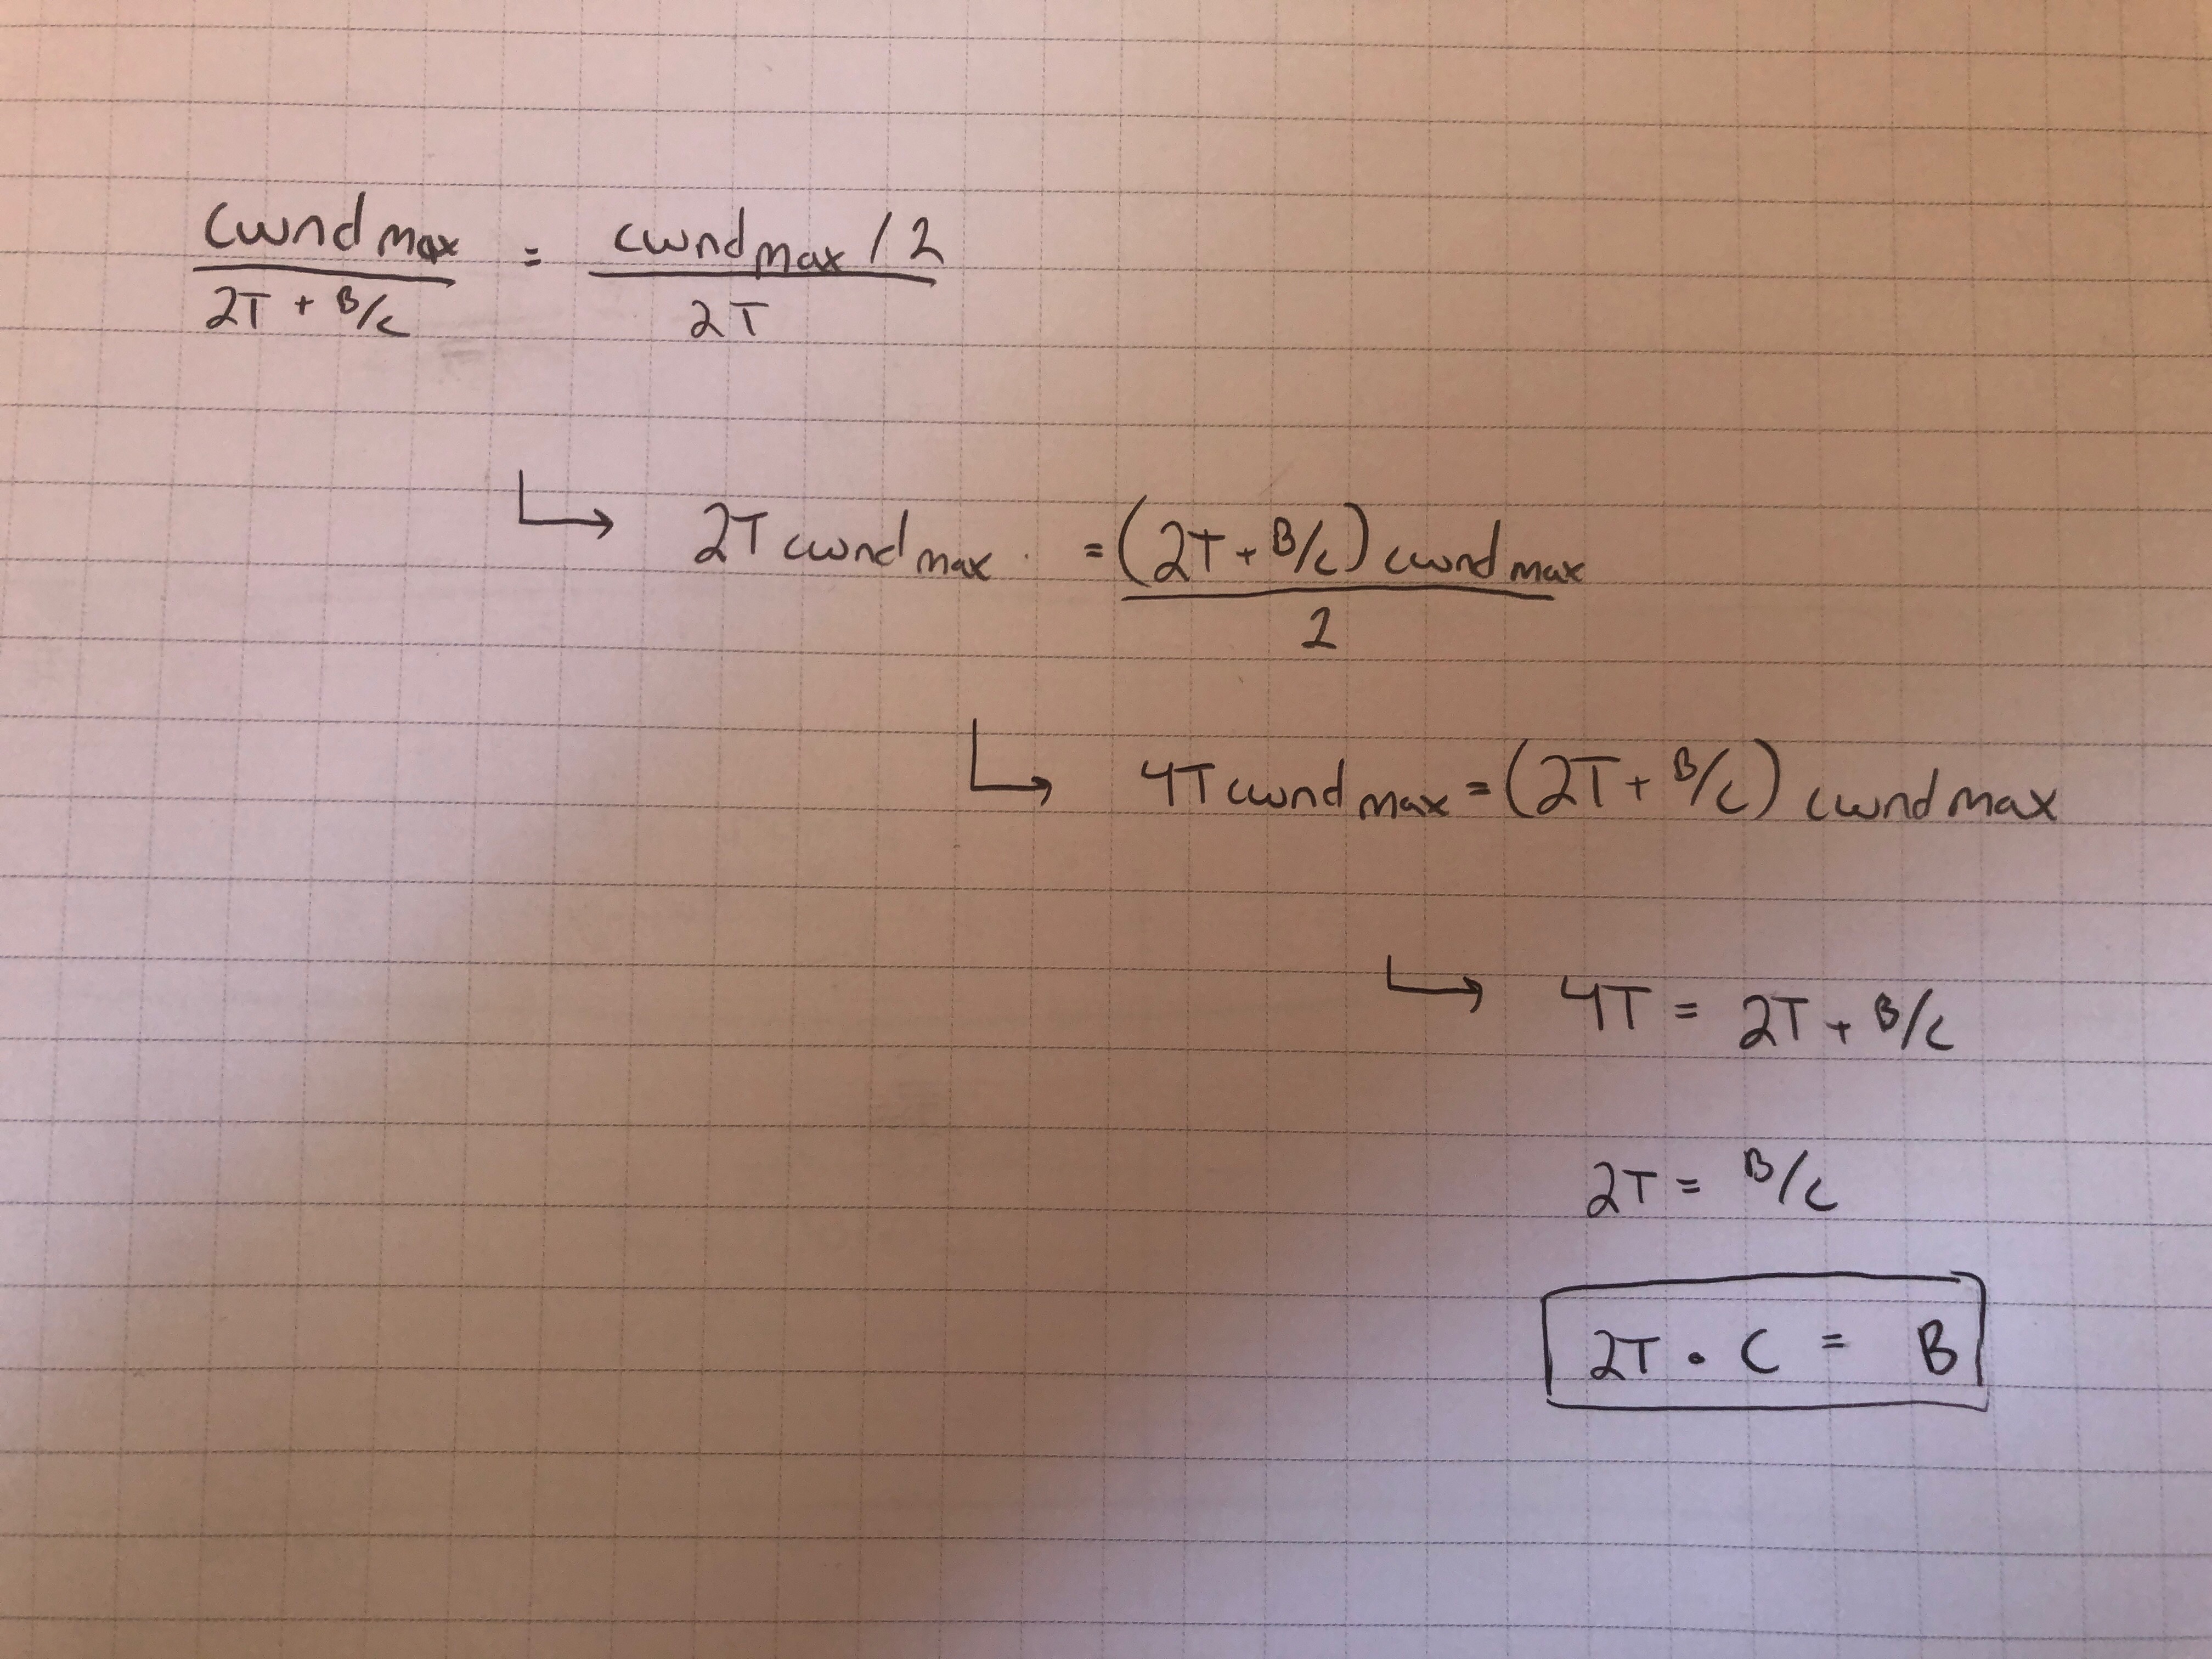 cwnd max / (2T + B/C) = (cwnd max / 2) / 2T
↳ 2T cwnd max · = (2T + B/C) cwnd max / 2
↳ 4T cwnd max = (2T + B/C) cwnd max
↳ 4T = 2T + B/C
2T = B/C
2T · C = B